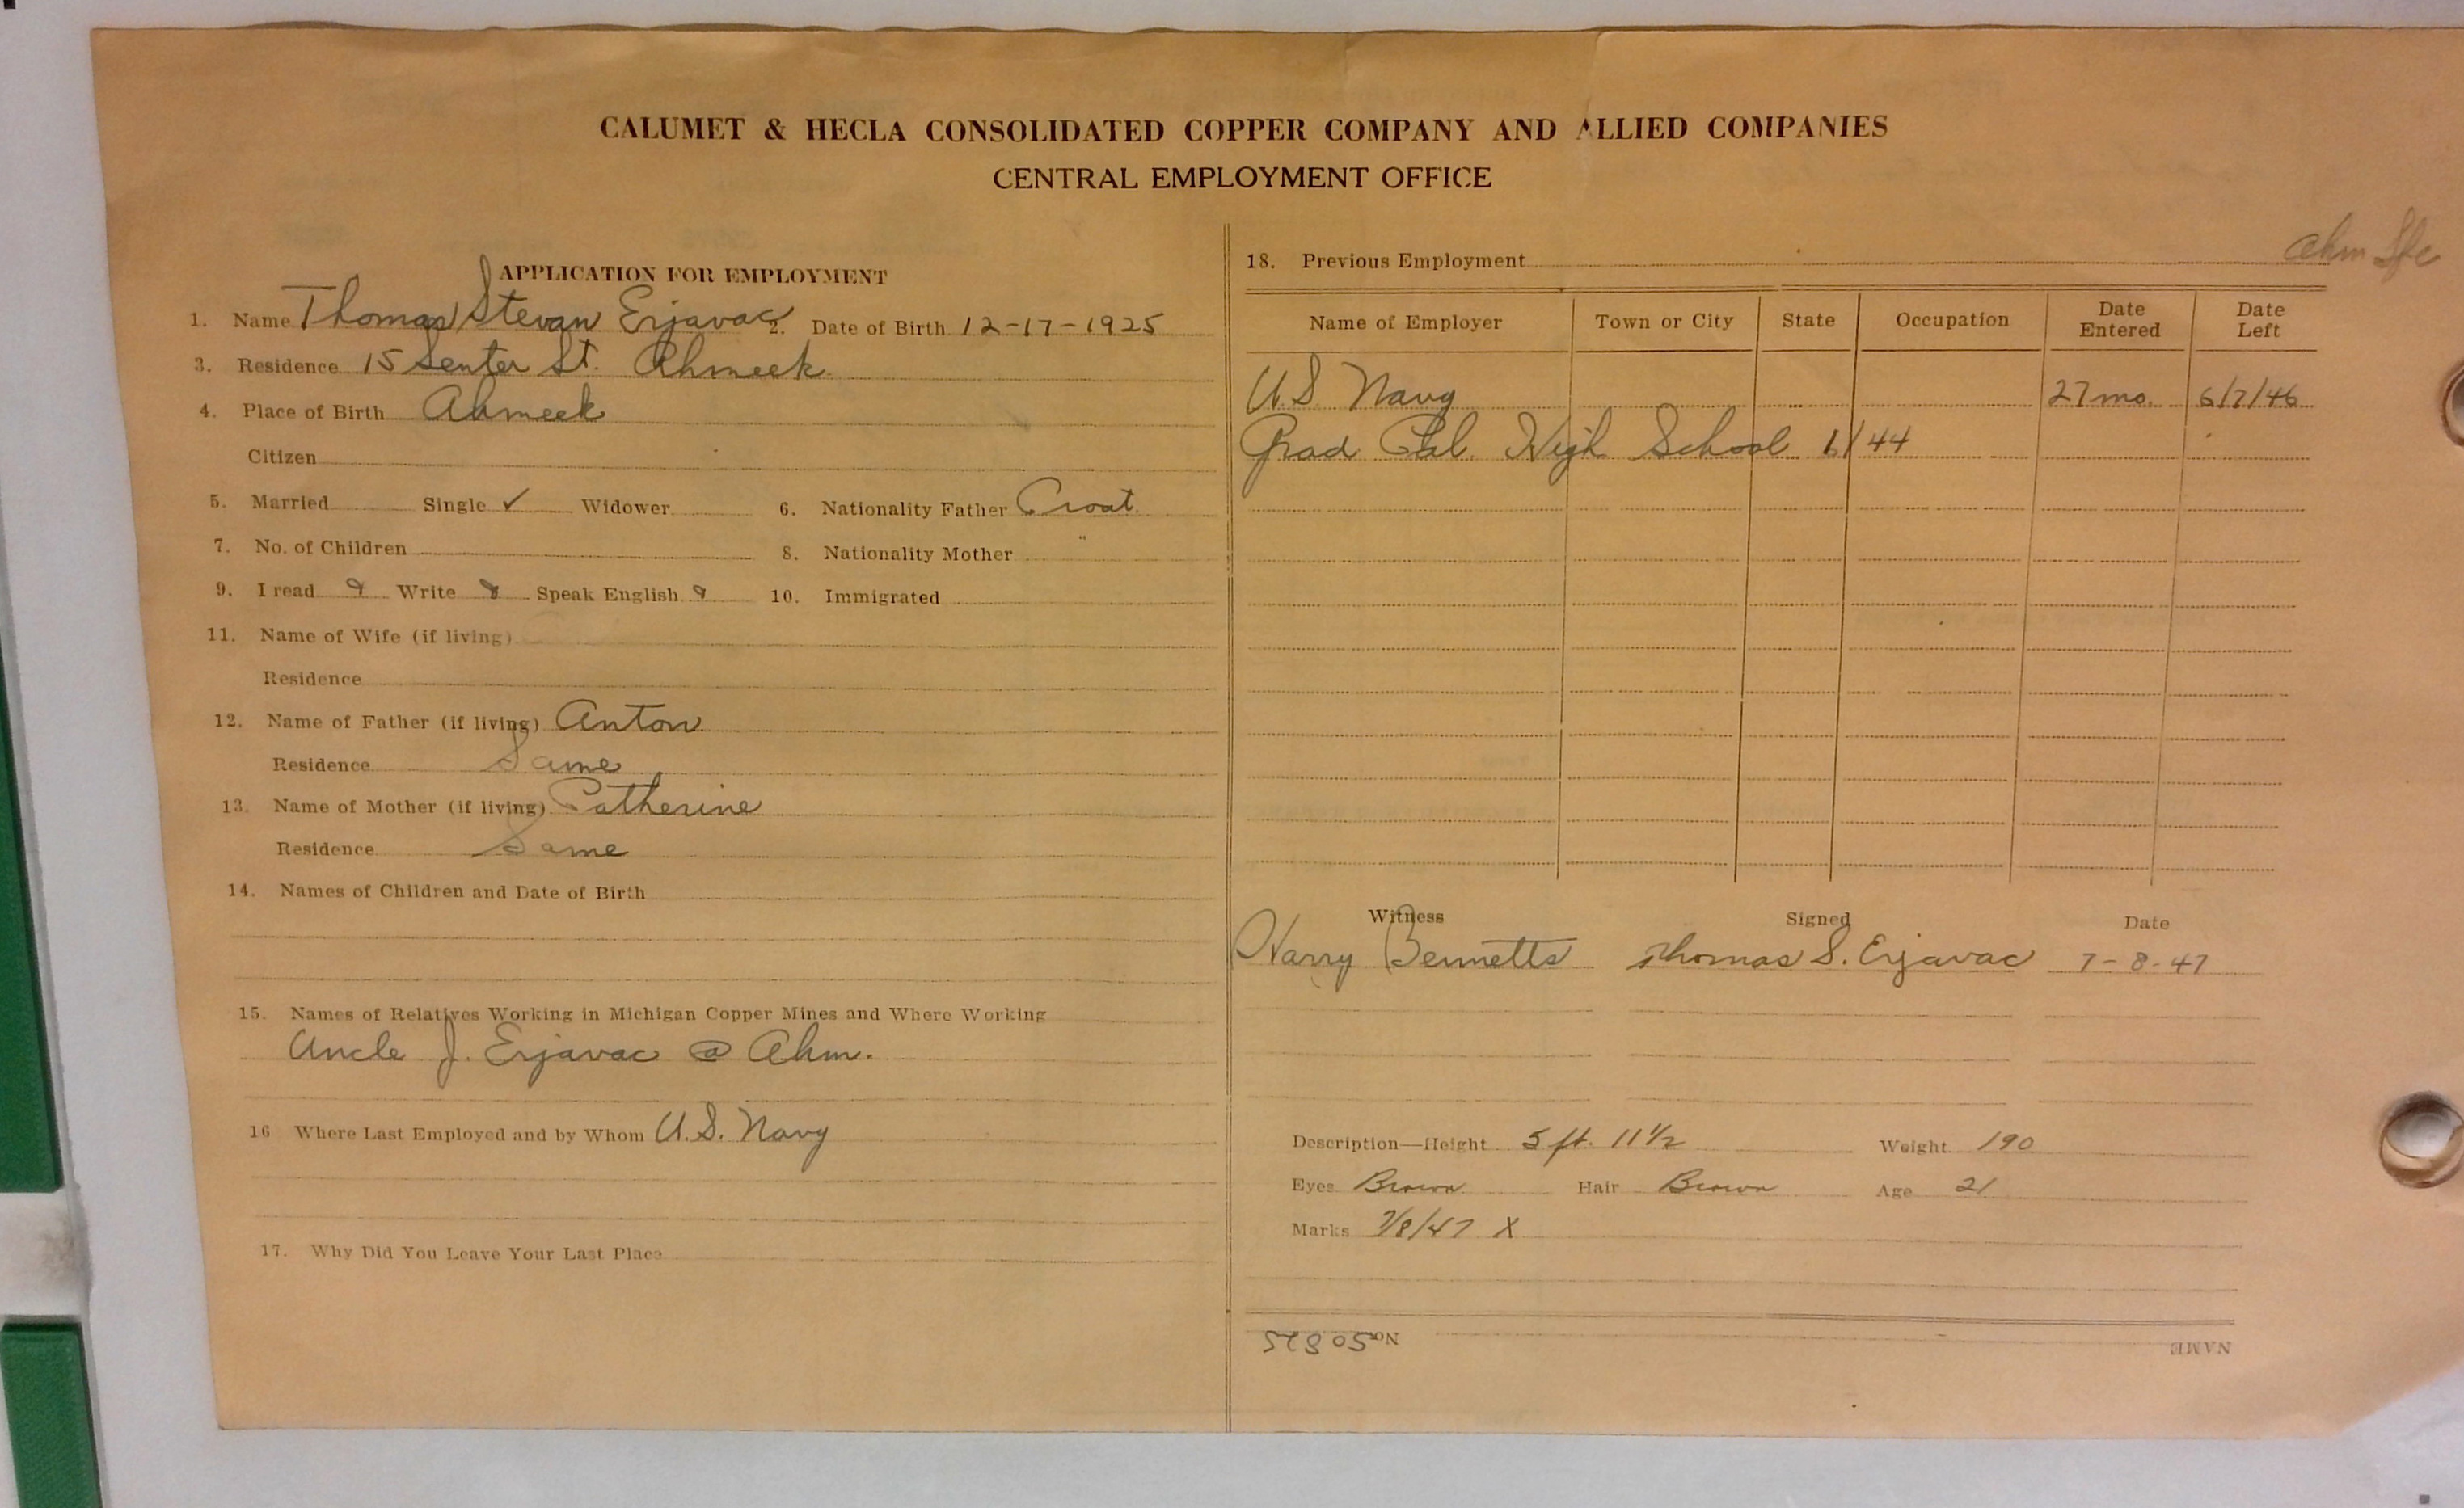 CALUMET & HECLA CONSOLIDATED COPPER COMPANY AND ALLIED COMPANIES
CENTRAL EMPLOYMENT OFFICE
APPLICATION FOR EMPLOYMENT
1. Name Thomas Stevan Erjavac 2. Date of Birth 12-17-1925
3. Residence 15 Senter St. Ahmeek
4. Place of Birth Ahmeek
Citizen
5. Married Single ✓ Widower 6. Nationality Father Croat
7. No. of Children 8. Nationality Mother "
9. I read Write Speak English 10. Immigrated
11. Name of Wife (if living)
Residence
12. Name of Father (if living) Anton
Residence Same
13. Name of Mother (if living) Catherine
Residence Same
14. Names of Children and Date of Birth
15. Names of Relatives Working in Michigan Copper Mines and Where Working
Uncle J. Erjavac @ Ahm.
16 Where Last Employed and by Whom U.S. Navy
17. Why Did You Leave Your Last Place
Ahm
18. Previous Employment
Name of Employer Town or City State Occupation Date Entered Date Left
U.S. Navy 27 mo. 6/7/46
Grad Cal. High School 6/44
Witness Signed Date
Harry Bennetts Thomas S. Erjavac 7-8-47
Description—Height 5 ft. 11 1/2 Weight 190
Eyes Brown Hair Brown Age 21
Marks 7/8/47 X
NAME No. 50825